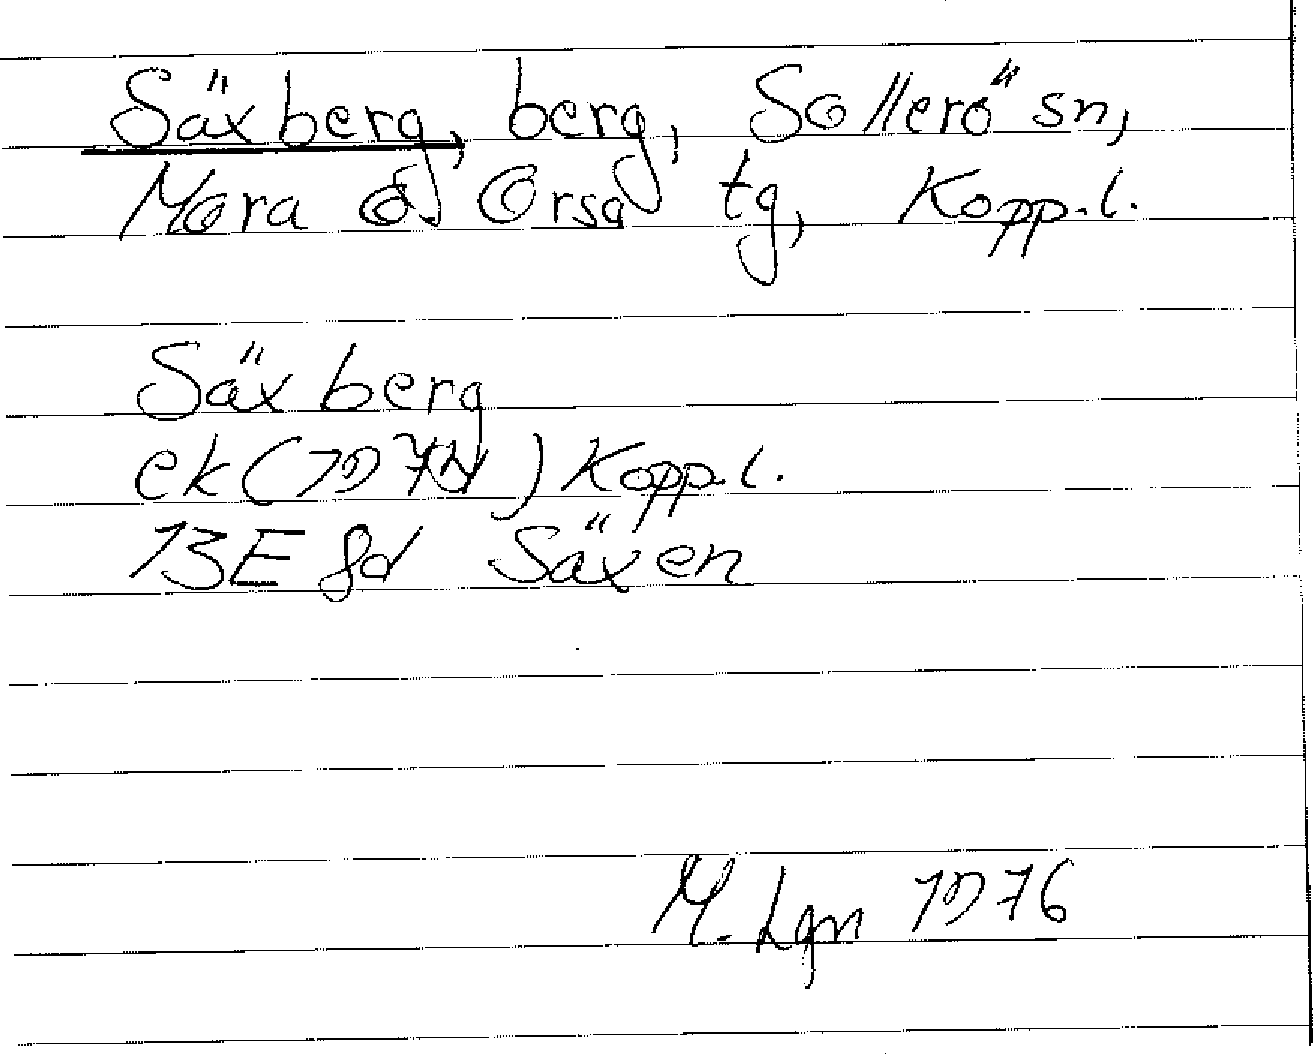 Säxberg, berg, Sollerö sn,
Mora o. Orsa tg, Kopp.l.
Säxberg
ek Kopp.l.
13E Säxen
M. Lgn 1976